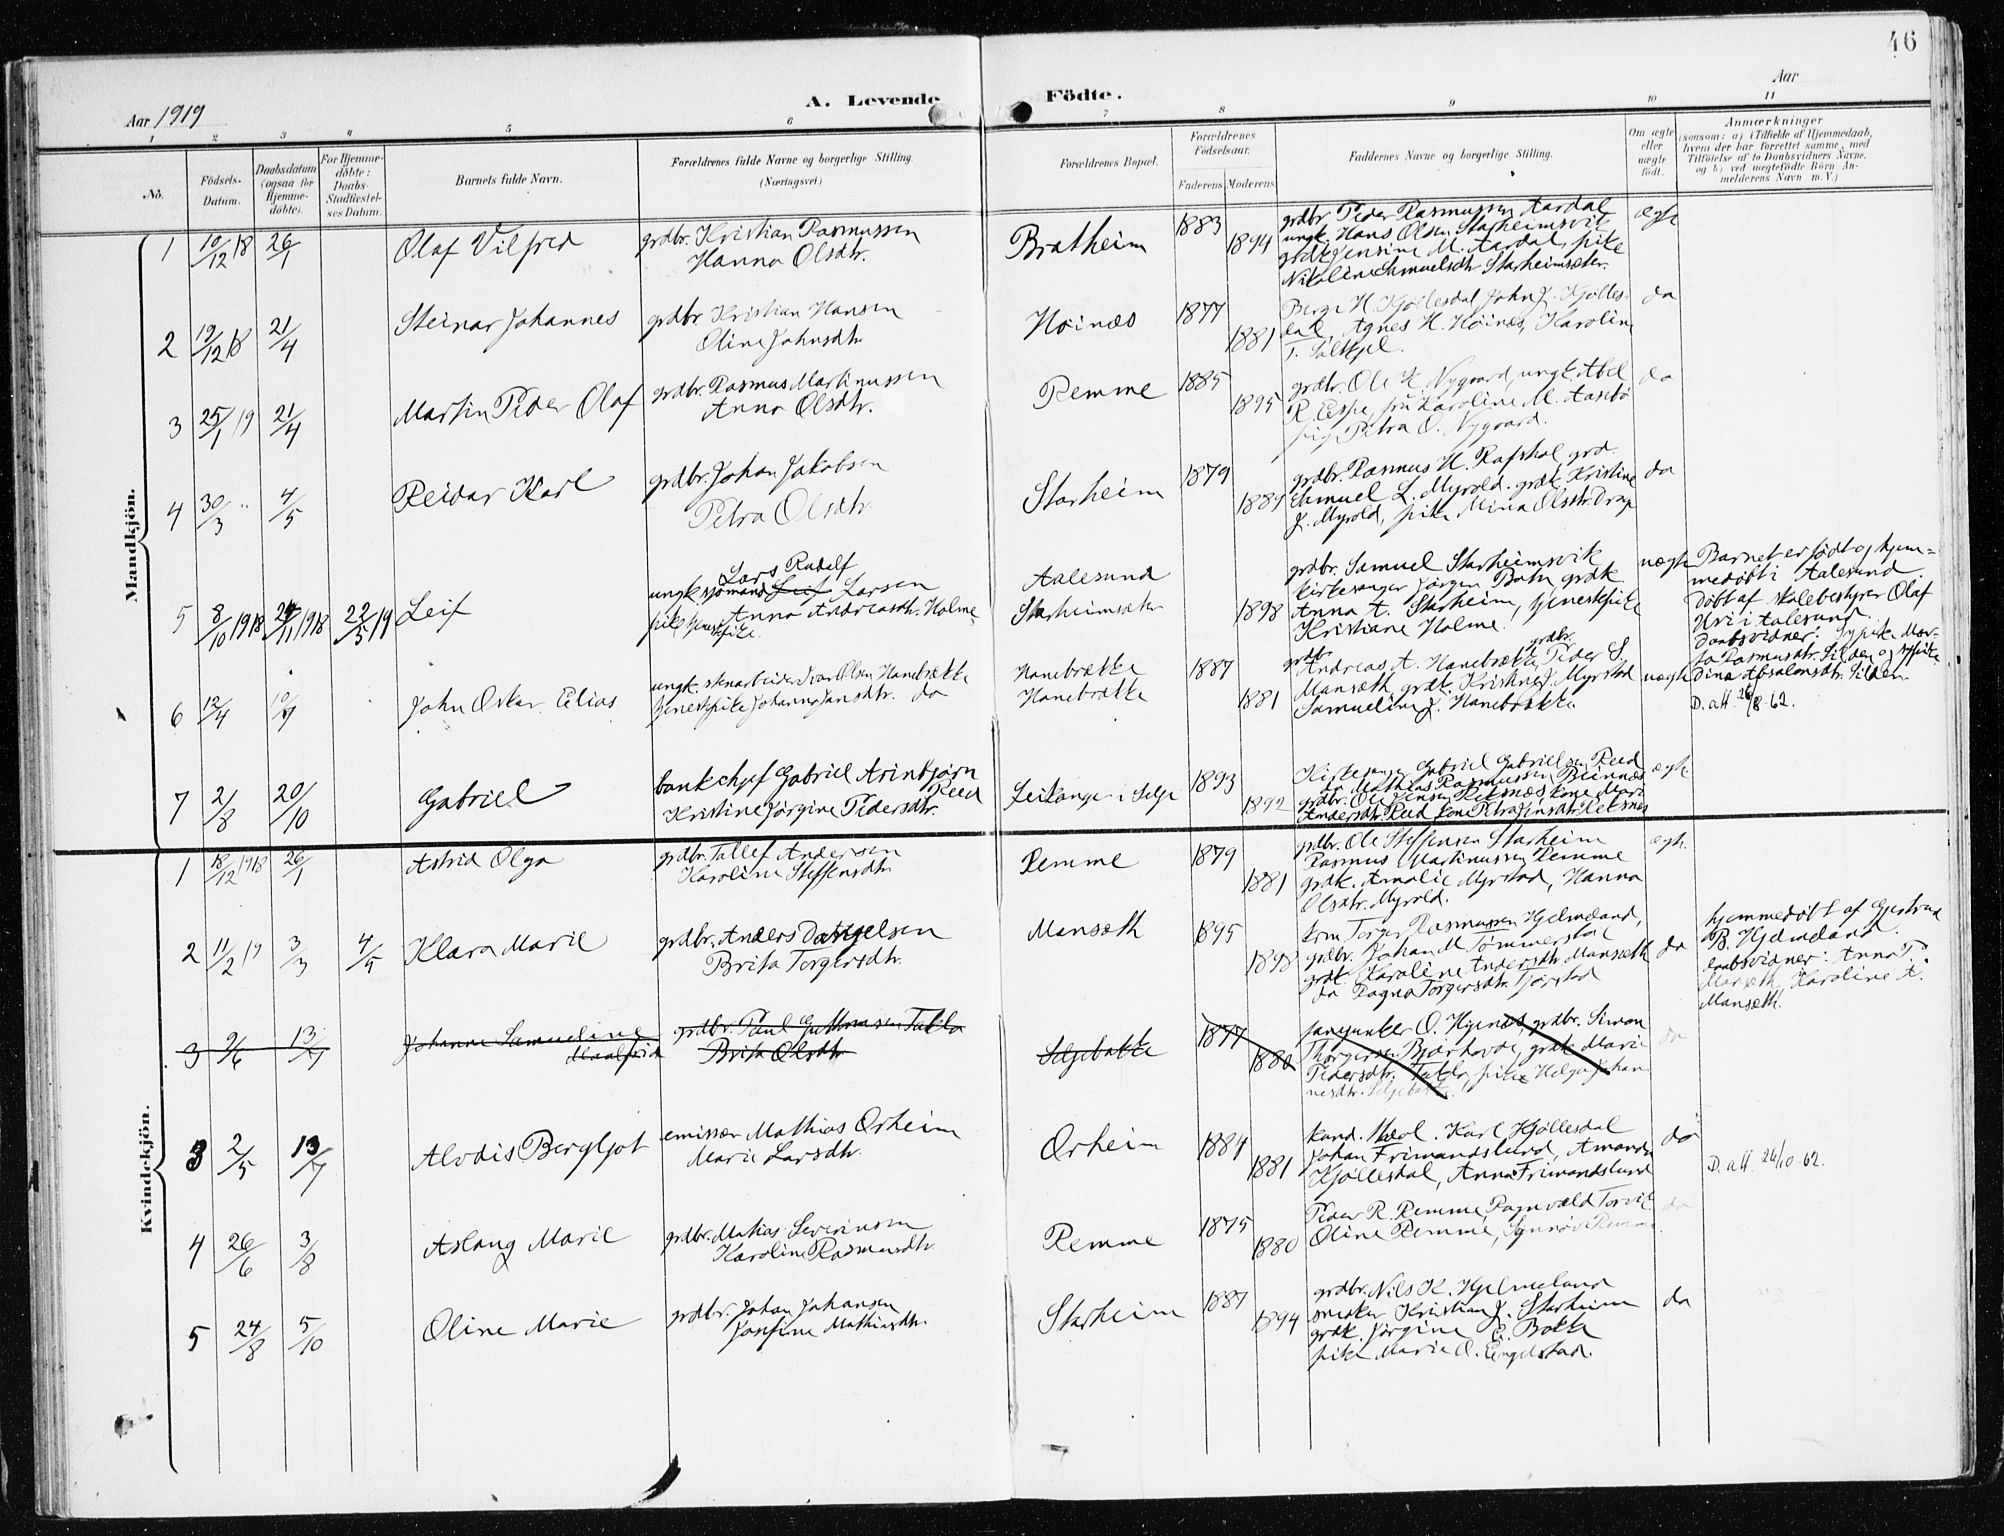 46
Aar 1919
A. Levende
Födte.
Aar
1 2 3 4 5 6 7 8 9 10 11
No.
Födsels-Datum.
Daabsdatum (ogsaa for Hjemme-döbte).
For Hjemme-döbte: Daabs-Stadfæstel-ses Datum.
Barnets fulde Navn.
Forældrenes fulde Navne og borgerlige Stilling.
(Næringsvei.)
Forældrenes Bopæl.
Forældrenes Födselsaar.
Faderens Moderens
Faddernes Navne og borgerlige Stilling.
Om ægte eller uægte födt.
Anmærkninger
(saasom: a) i Tilfælde af Hjemmedaab,
hvem der har forrettet samme, med
Tilföielse af to Daabsvidners Navne,
og b) ved uegtefödte Börn An-
melderens Navn m. V.)
Mandkjön.
1 10/12 18 26/1 Olaf Vilfred
grdbr. Kristian Rasmussen
Hanna Olsdtr.
Bratheim 1883 1894
grdbr. Peder Rasmussen Aardal
ungk. Hans Olsen Starheimsvik
grdk Jensine M. Aardal, pike
Nikoline Samuelsdtr. Starheimsæter.
ægte
2 19/12 18 21/4 Steinar Johannes
grdbr. Kristian Hansen
Oline Johnsdtr.
Hoinæs 1877 1881
Berge H. Kjøllesdal John J. Kjølles-
dal, Agnes H. Höinæs, Karoline
T.
da
3 25/1 19 21/4 Martin Peder Olaf
grdbr. Rasmus Martinussen
Anna Olsdtr.
Remme 1885 1895
grdbr. Ole K. Nygaard, ungk. Abel
R. Espe, fru Karoline M. Aasebö
pig Petra O. Nygaard.
da
4 30/3 " 4/5 Reidar Karl
grdbr. Johan Jakobsen
Petra Olsdtr.
Starheim 1879 1889
grdbr. Rasmus H. Rafshol grd.
Samuel L. Myrold. grdk. Kristine
J. Myrold, pike Mina Olsdtr. Drage
da
5 8/10 1918 24/11 1918 22/5 19 Leif
Lars Rudolf
ungk. sjømand Leif Larsen
pike Anna Andreasdtr. Holme
tjenestpike
Aalesund
Starheimsæter 1898
grdbr. Samuel Starheimsvik
kirkesanger Jørgen Botn grdk.
Anna A. Starheim, tjenestpike
Kristiane Holme.
uægte
Barnet er født og hjem=
medöbt i Aalesund
döbt af skolebestyrer Olaf
i Aalesund.
Daabsvidner: Sypike Mar-
ta Rasmusdtr. Silden og sypike
Dina Absalonsdtr. Silden
6 12/4 10/7 John Oskar Elias
ungk. stenarbeider Ivar Olsen Hanebrække
tjenestpike Johanne Jansdtr. da
Hanebrække
Hanebrække 1887 1881
grdbr. grdbr.
Andreas A. Hanebrække, Peder S.
Mansæth grdk. Kristine J. Myrstad
Samueline J. Hanebrække.
uægte
D. att. 26/8-62.
7 2/8 20/10 Gabriel
bankchef Gabriel Arinbjørn
Reed
Kristine Jørgine Pedersdtr.
Leikanger i Selje 1893 1892
Kirkesanger Gabriel Gabrielsen Reed
da Mathias Rasmussen
grdbr. Ole Jensen Reksnes kone Mari
Andersdtr. Reed kone Petra Jensdtr. Reksnes
ægte
Kvindekjön.
1 18/12 1918 26/1 Astrid Olga
grdbr. Tallef Andersen
Karoline Steffensdtr.
Remme 1879 1881
grdbr. Ole Steffensen Starheim
Rasmus Martinussen Remme
grdk. Amalie Myrstad, Hanna
Olsdtr. Myrold.
ægte
2 11/2 19 3/3 4/5 Klara Marie
grdbr. Anders Danielsen
Brita Torgersdtr.
Mansæth 1895 1898
krm Torger Rasmussen Hjelmeland,
grdbr. Johan M. Tømmerstøl
grdk. Karoline Andersdtr. Mansæth
da Ragna Torgersdtr. Tjörstad
da
hjemmedöbt af Gjertrud
B. Hjelmeland.
daabsvidner: Anna T.
Mansæth, Karoline A.
Mansæth.
3 9/6 13/7 Johanne Samueline
Maalfrid
grdbr. Paul Guttormsen Takla
Brita Olsdtr
Seljebakke 1877 1880
forgjunker O. Hjenes, grdbr. Simon
Thorgersen Bjørhovde, grdk. Marie
Pedersdtr. Takla, pike Helga Johan
nesdtr. Seljebakke.
da
3 2/5 13/7 Alvdis Bergljot
emissær Mathias Orheim
Marie Larsdtr.
Orheim 1884 1881
kand. theol. Karl Kjøllesdal
Johan Frimandslund, Amanda
Kjøllesdal, Anna Frimandslund
da
D. att. 24/10-62.
4 26/6 3/8 Aslaug Marie
grdbr. Mathias Severinsen
Karoline Rasmusdtr.
Remme 1875 1880
Peder R. Remme, Ragnvald Torvik
Oline Remme, Synnøv Remme
da
5 24/8 5/10 Oline Marie
grdbr. Johan Johansen
Josefine Mathiasdtr.
Starheim 1887 1894
grdbr. Nils K. Hjelmeland
snekker Kristian J. Starheim
grdk. Jørgine E. Bakke
pike Marie O. Engelstad.
da